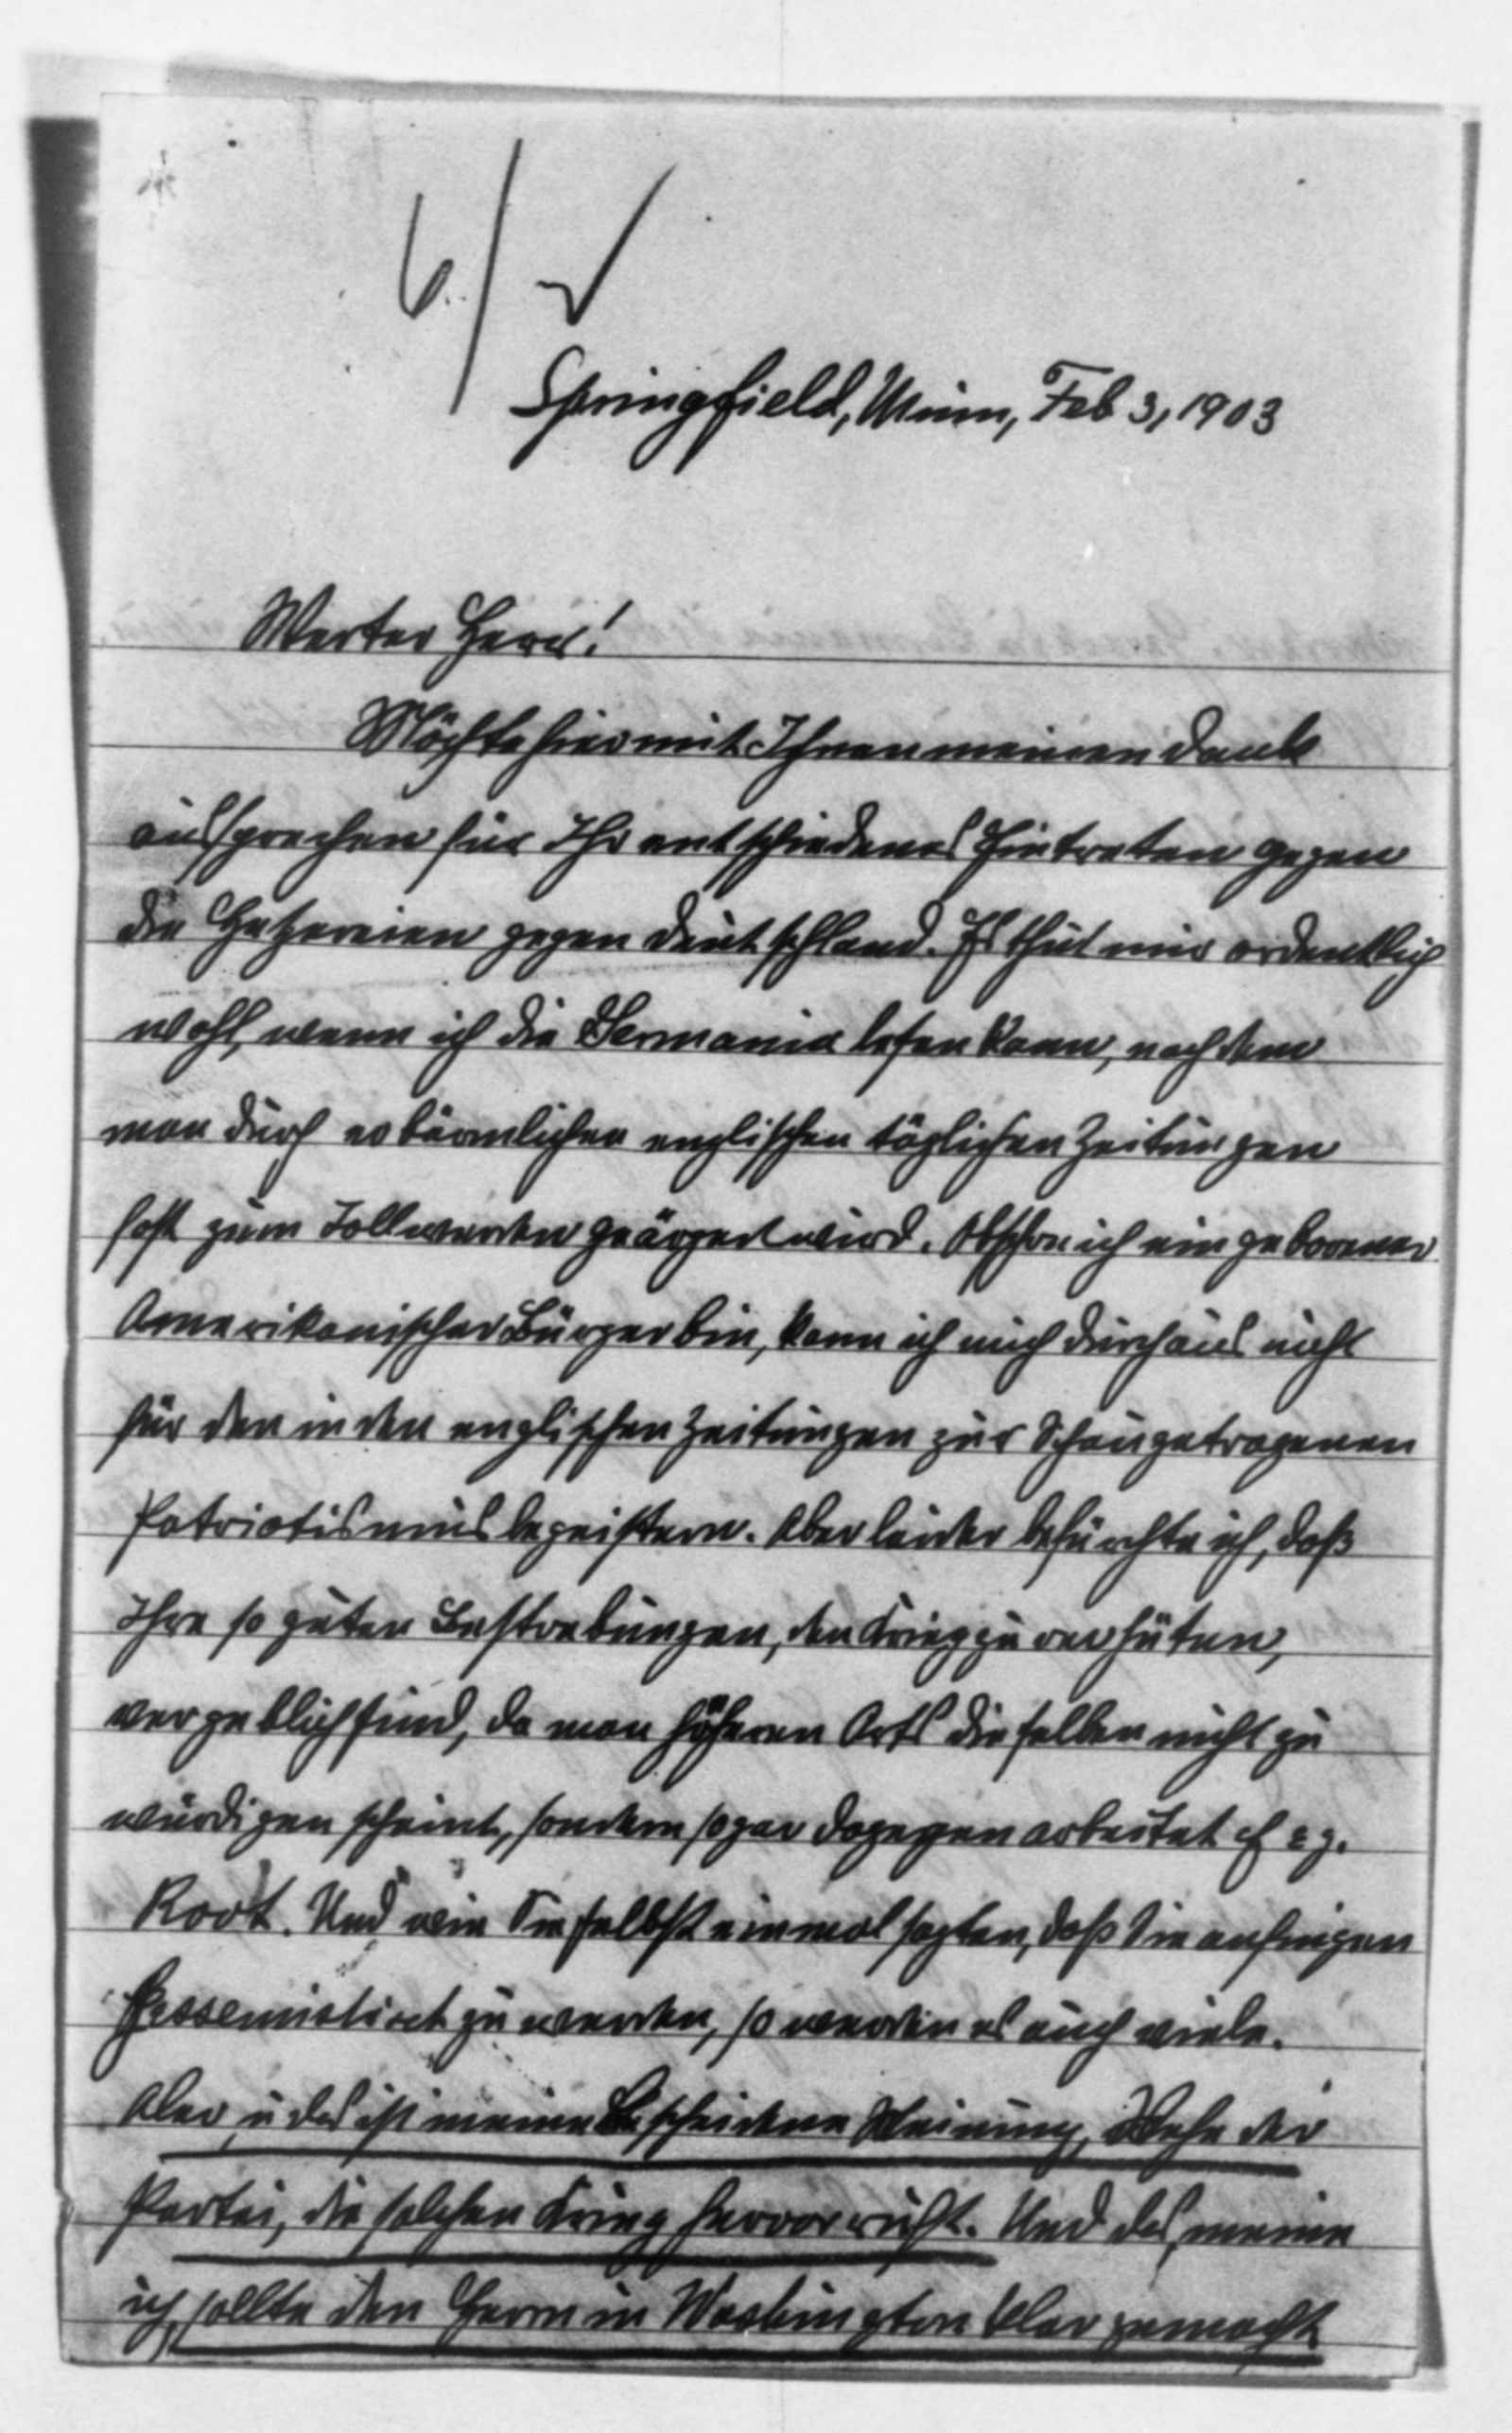 6./ √
Springfield, Minn, Feb 3, 1903
Werter Herr!
Möchte hiermit Ihnen meinen Dank
aussprechen für Ihr entschiedenes Eintreten gegen
die Hetzereien gegen Deutschland. Es thut mir ordentlich
wohl, wenn ich die Germania lesen kann, nachdem
man durch erbärmlichen englischen täglichen Zeitungen
fast zum Tollwerden geärgert wird. Obschon ich ein geborener
Amerikanischer Bürger bin, kann ich mich durchaus nicht
für den in den englischen Zeitungen zur Schau getragenen
Patriotismus begeistern. Aber leider befürchte ich, daß
Ihre so guten Bestrebungen, den Krieg zu verhüten,
vergeblich sind, da man höheren Orts dieselben nicht zu
würdigen scheint, sondern sogar dagegen arbeitet cf e.g.
Root. Und wie Sie selbst einmal sagten, daß Sie anfingen
Pessemistisch zu werden, so werden es auch viele.
Aber, u das ist meine Bescheidene Meinung, Wehe der
Partei, die solchen Krieg hervorruft. Und das, meine
ich, sollte den Herrn in Washington klar gemacht